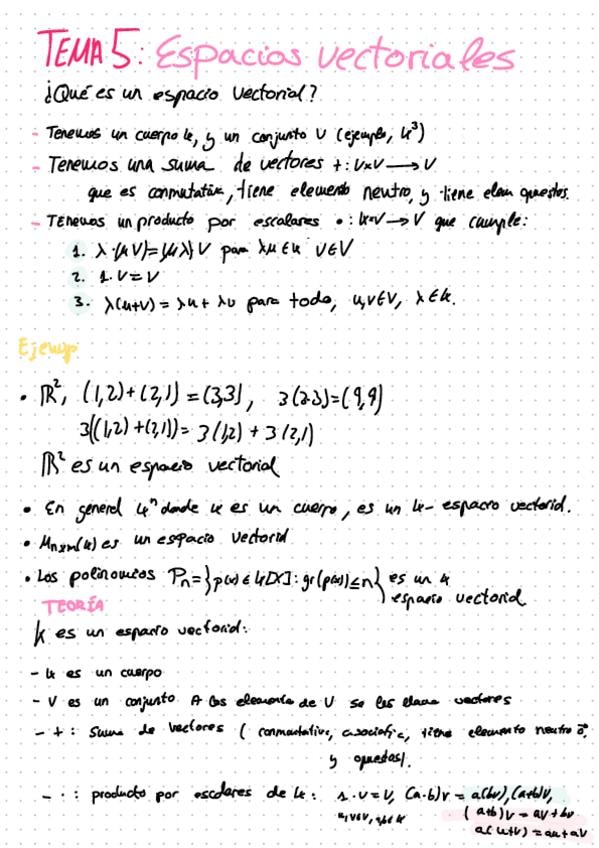 TEMA 5: Espacios vectoriales
¿Qué es un espacio vectorial?
- Tenemos un cuerpo k, y un conjunto V (ejemplo, k³)
- Tenemos una suma de vectores +: V×V → V
que es conmutativa, tiene elemento neutro, y tiene elem opuestos.
- TEnemos un producto por escalares •: k×V → V que cumple:
1. λ·(μV)=(μλ)V para λμ∈k V∈V
2. 1.V=V
3. λ(u+v) = λu + λv para todo, u,v∈V, λ∈k.
Ejemp
• ℝ², (1,2)+(2,1) = (3,3), 3(3,3)=(9,9)
3((1,2)+(2,1)) = 3(1,2) + 3(2,1)
ℝ² es un espacio vectorial
• En general kⁿ donde k es un cuerpo, es un k- espacio vectorial.
• Mn×m(k) es un espacio vectorial
• Los polinomios Pn={p(x)∈k[X]: gr(p(x))≤n} es un k
espacio vectorial
TEORÍA
k es un espacio vectorial:
- k es un cuerpo
- V es un conjunto A los elementos de V se les llama vectores
- + : Suma de vectores (conmutativa, asociativa, tiene elemento neutro 0⃗,
y opuestos).
- · : producto por escalares de k: 1.v=v, (a·b)v = a(bv), (a+b)v,
u,v∈V, a,b∈k (a+b)v = av + bv
a(u+v) = au+av